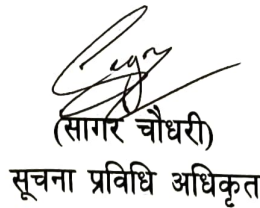 (सागर चौधरी)
सूचना प्रविधि अधिकृत